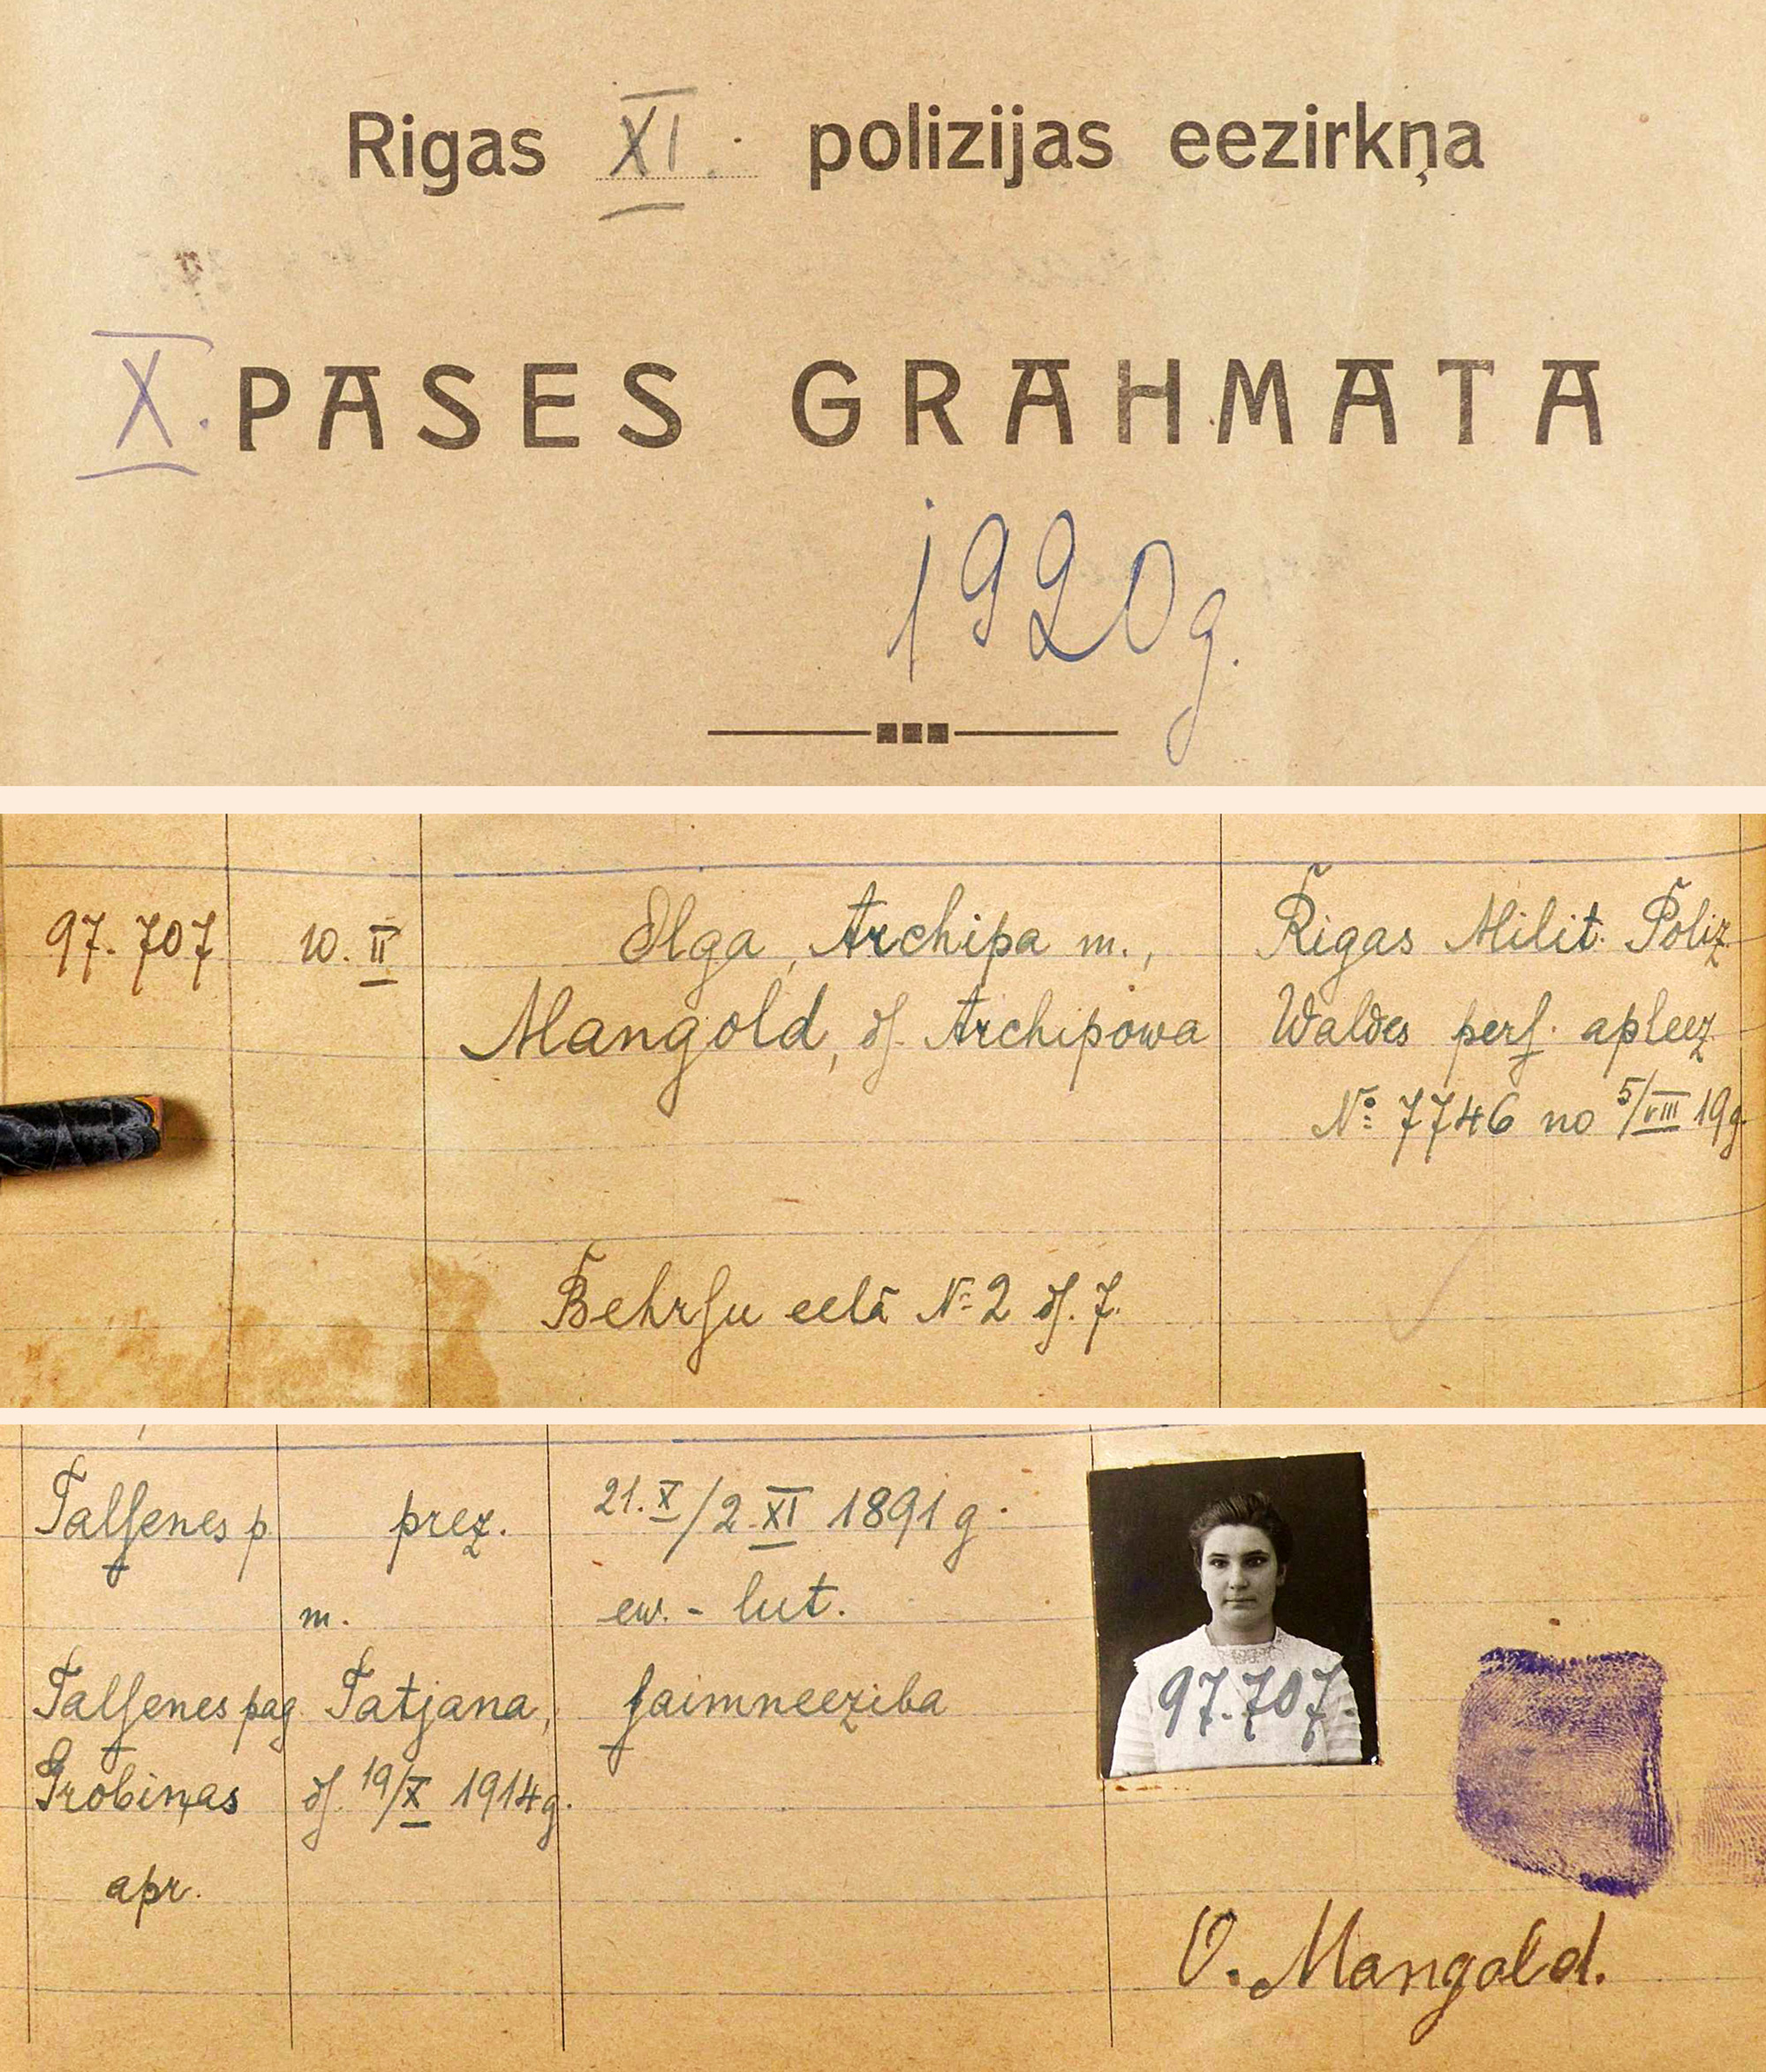 Rigas XI. polizijas eezirkņa
X. PASES GRAHMATA
1920 g.
97.707
10. II
Olga, Archipa m.,
Mangold, dſ. Archipowa
Behrſu eelā № 2 dſ. 7.
Rigas Milit. Poliz.
Waldes perſ. apleez.
№ 7746 no 5/VIII 19 g.
Talſenes p.
Talſenes pag.
Grobiņas
apr.
prez.
m.
Tatjana,
dſ. 19/X 1914 g.
21. X/2. XI 1891 g.
ew.-lut.
ſaimneeziba
97.707.
O. Mangold.